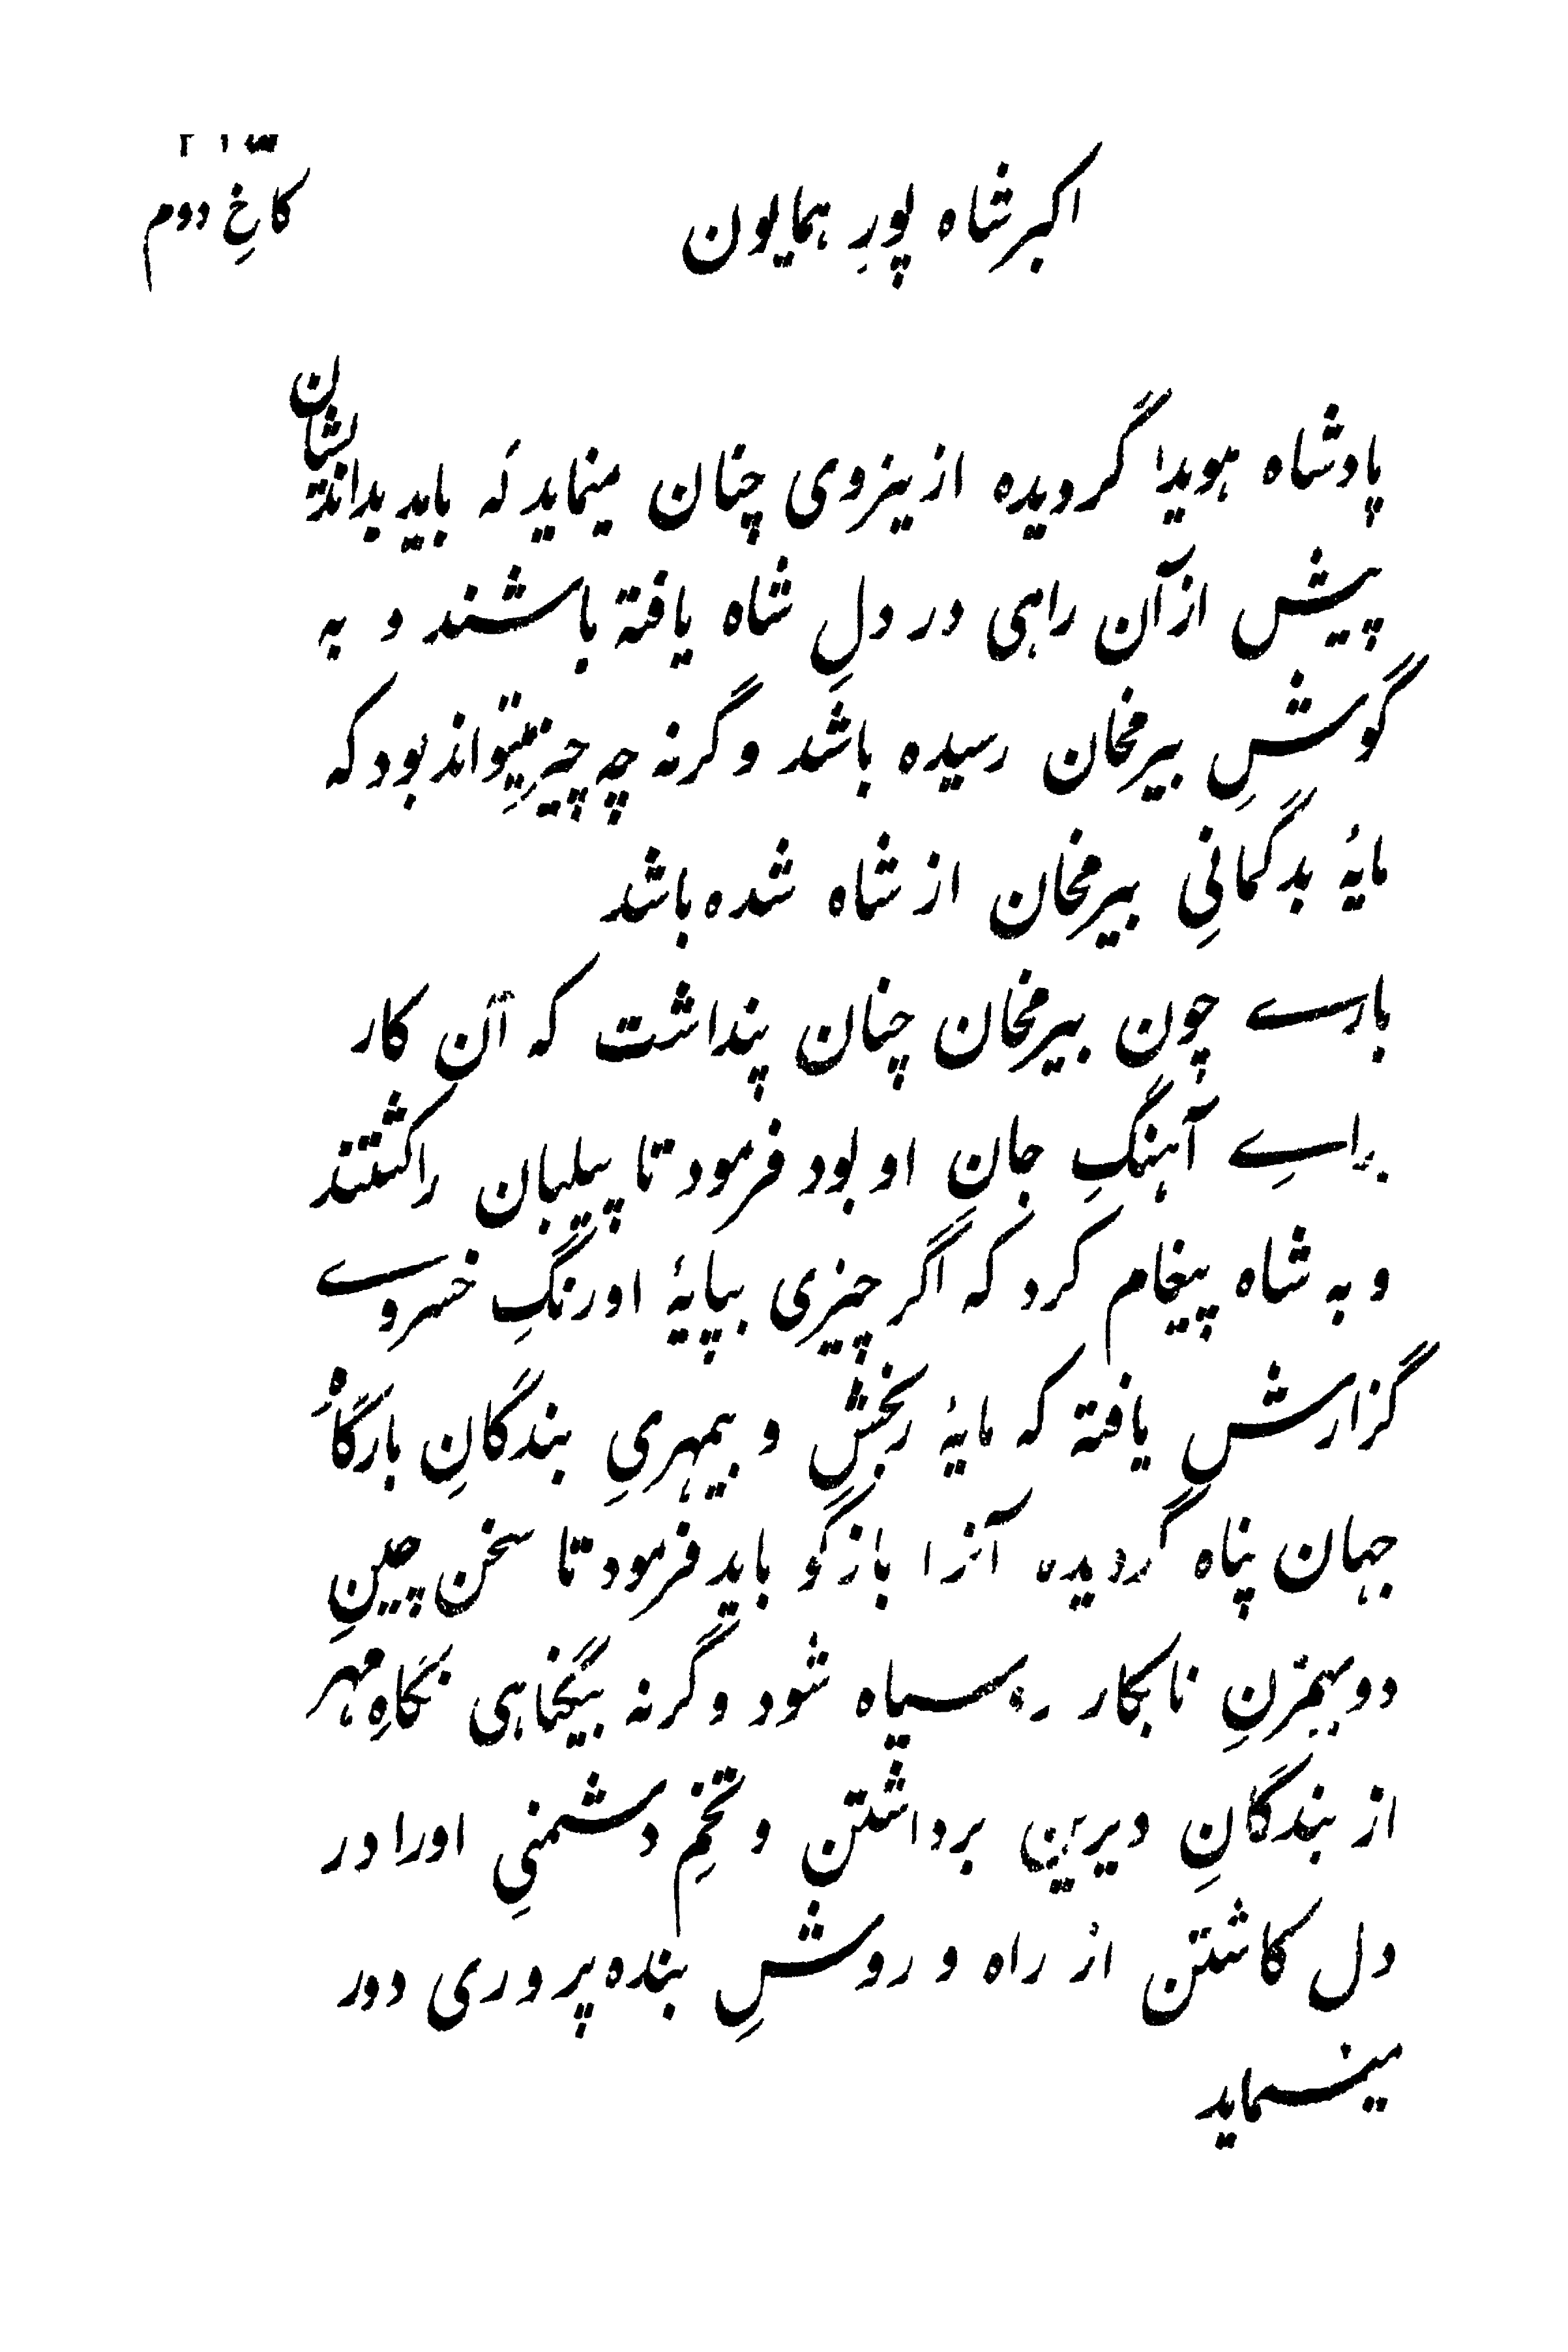 کاخِ دوم
اکبرشاه پورِ همایون
پادشاه هویدا گردیده ازینروی چنان مینماید که باید بداندیشان
پیش ازآن راهی در دلِ شاه یافته باشند و به
گوشِ بیرمخان رسیده باشد وگرنه چه چیز میتواند بود که
مایهٔ بدگمانیِ بیرمخان از شاه شده باشد
بارے چون بیرمخان چنان پنداشت که آن کار
براےِ آهنگِ جانِ او بود فرمود تا پیلبان را کشتند
و به شاه پیغام کرد که اگر چیزی بپایهٔ اورنگِ خسروے
گزارش یافته که مایهٔ رنجش و بیمهریِ بندگانِ بارگاهِ
جهان پناه گردیده آنرا بازگو باید فرمود تا سخن چینِ
دوبهمزنِ نابکار روسیاه شود وگرنه بیگناهی نگاهِ مهر
از بندگانِ دیرین برداشتن و تخمِ دشمنیِ اورا در
دل کاشتن از راه و روشِ بنده پروری دور
مینماید